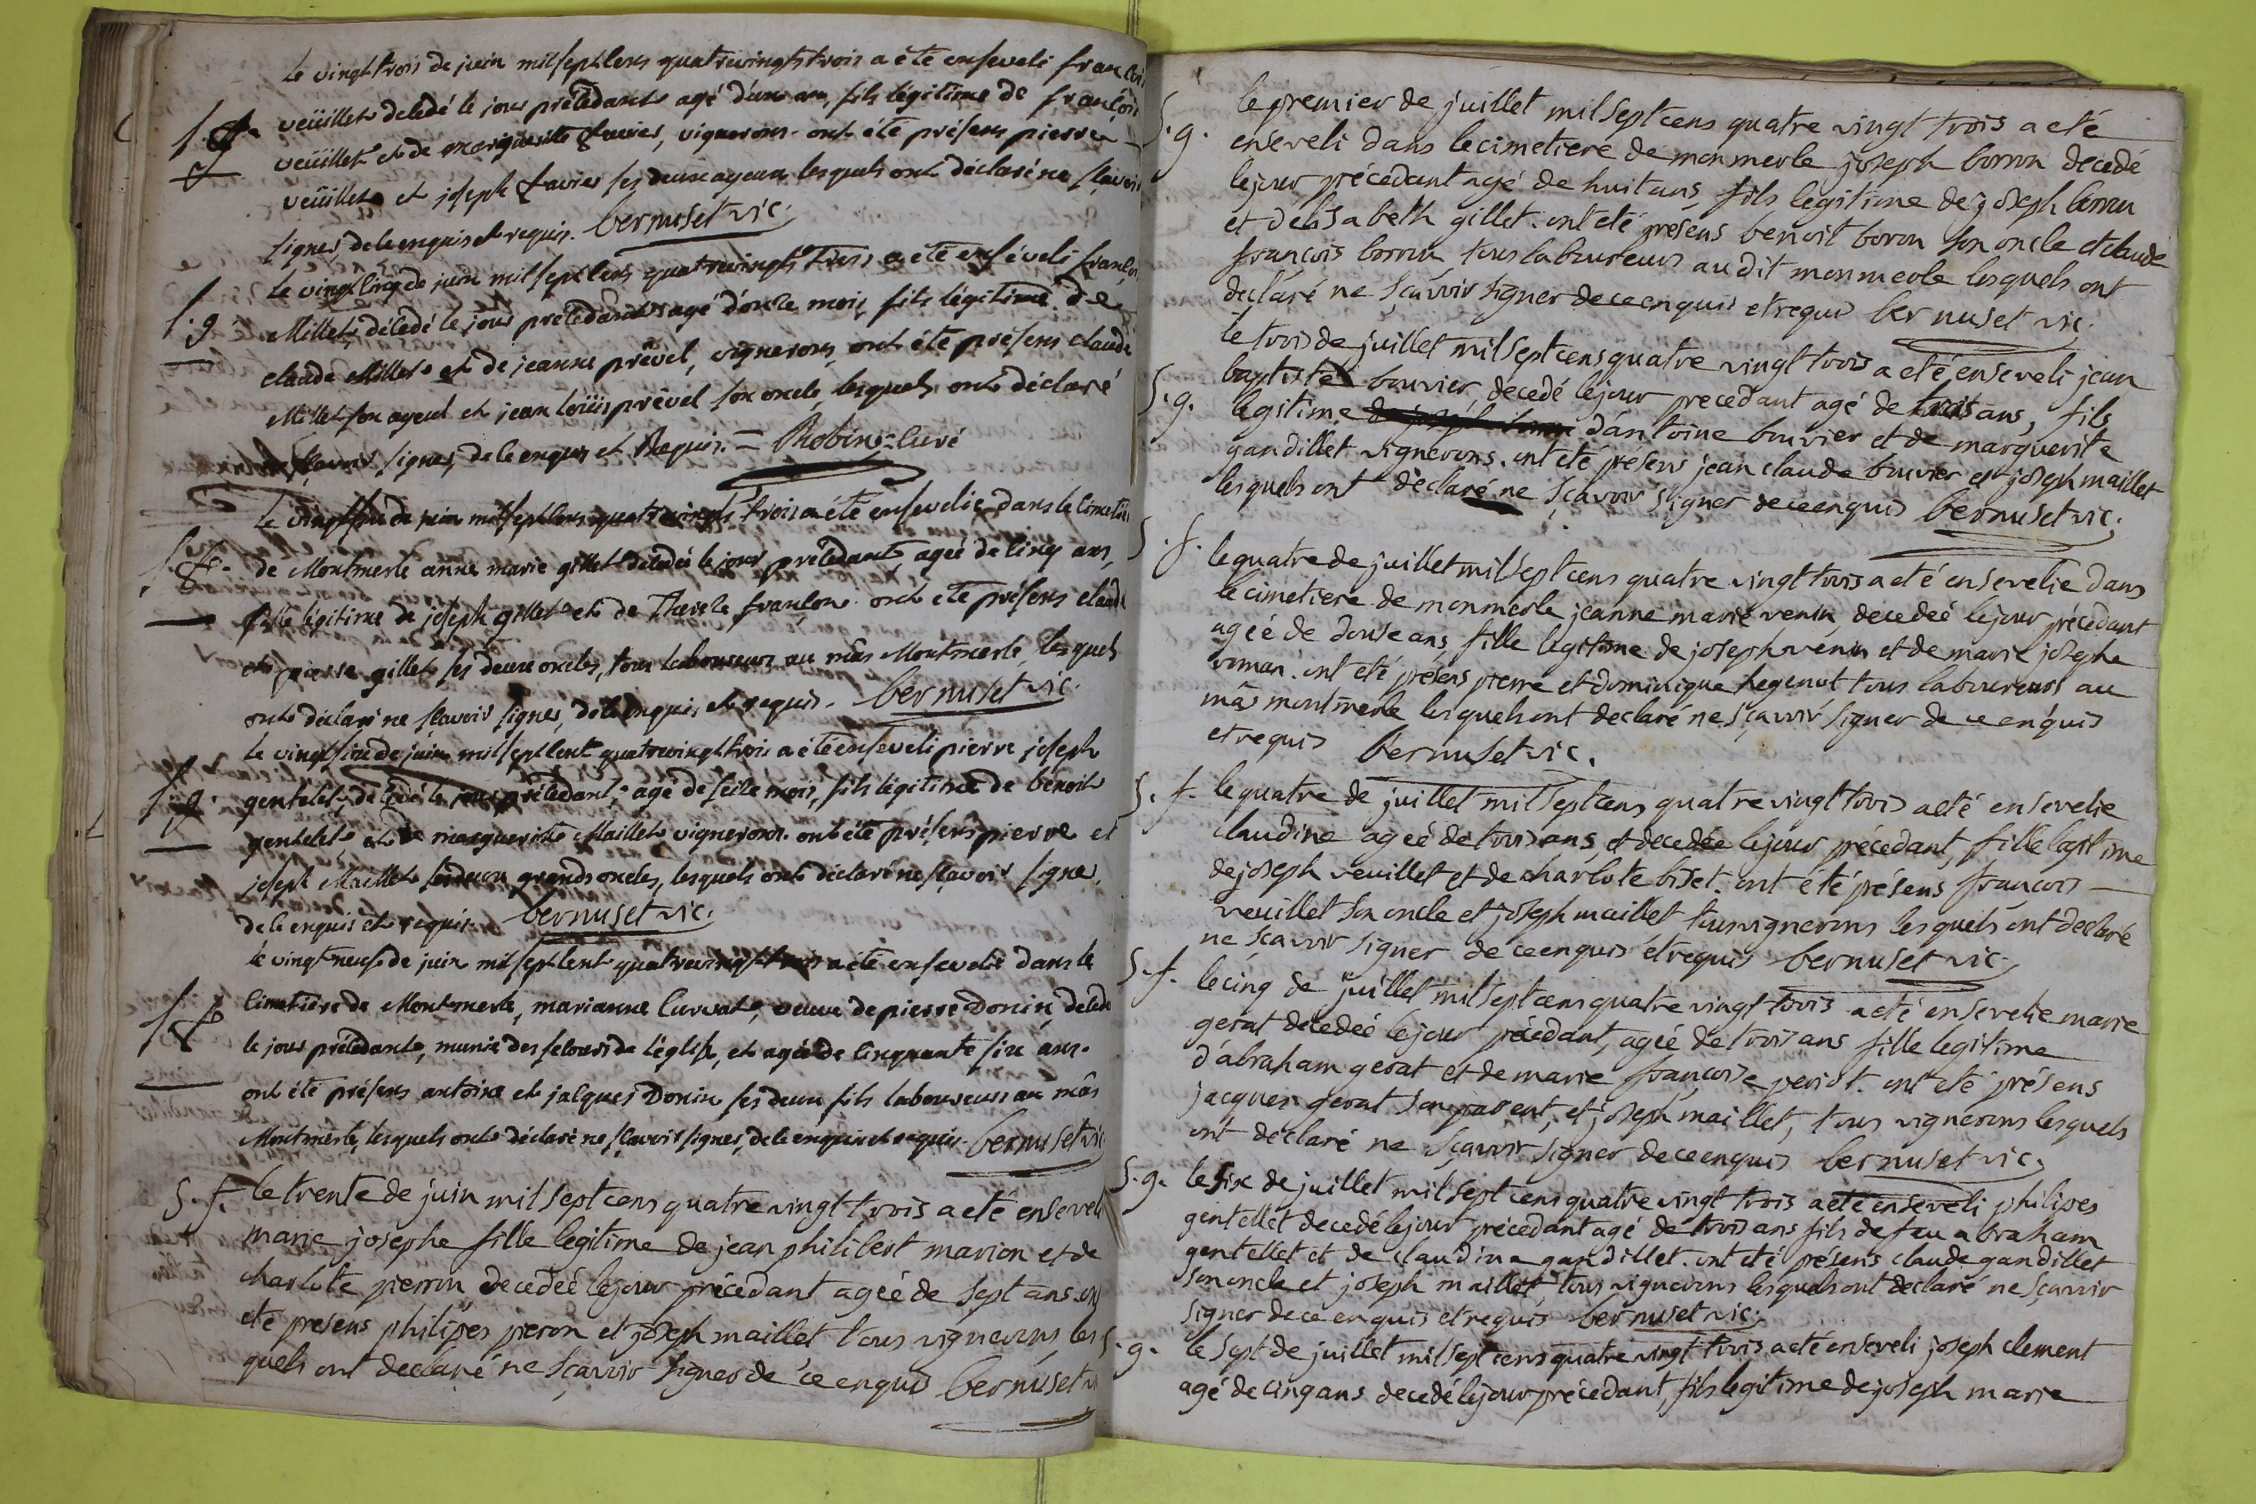 Le vingt trois de juin mil sept cens quatrevingts trois a été enseveli françois
s. g. veüillet décédé le jour précédant agé d'un an, fils légitime de françois
veüillet et de marguerite favier, vignerons. ont été présens pierre
veüillet et joseph favier ses deux ayeux lesquels ont déclaré ne sçavoir
signer, de ce enquis et requis. bernuset vic.
Le vingt cinq de juin mil sept cens quatrevingts trois a été enséveli françois
s. g Millet, décédé le jour précédant agé d'onze mois, fils légitime de
claude Millet et de jeanne prével, vignerons, ont été présens claude
Millet son ayeul et jean loüis prével son oncle, lesquels ont déclaré
ne sçavoir signer, de ce enquis et Requis. = Robin = Curé
Le vingt six de juin mil sept cens quatrevingts trois a été ensevelie dans le cimetière
s. f. de Montmerle anne marie gillet décédée le jour précédant, agée de cinq ans,
fille légitime de joseph gillet et de Therese françon. ont été présens claude
et pierre gillet ses deux oncles, tous laboureurs au mâs Montmerle, lesquels
ont déclaré ne sçavoir signer, de ce enquis et requis. bernuset vic.
Le vingt six de juin mil sept cent quatrevingt trois a été enseveli pierre joseph
s. g. gentelet décédé le jour précédant, agé de seize mois, fils légitime de benoit
gentelet et de marguerite Maillet vignerons. ont été présens pierre et
joseph Maillet ses deux grands oncles, lesquels ont déclaré ne sçavoir signer,
de ce enquis et requis. bernuset vic.
le vingt neuf de juin mil sept cent quatrevingt trois a été ensevelie dans le
s. f. Cimetière de Montmerle, marianne Curvat, veuve de pierre Donin, décédée
le jour précédant, munie des secours de l'église, et agée de cinquante six ans.
ont été présens antoine et jacques Donin ses deux fils laboureurs au mâs
Montmerle, lesquels ont déclaré ne sçavoir signer, de ce enquis et requis. bernuset vic
s. f. le trente de juin mil sept cens quatre vingt trois a eté ensevelie
marie josephe fille legitime de jean philibert marion et de
charlote pieron decedeé le jour précédant ageé de sept ans. ont
eté presens philipes pieron et joseph maillet tous vignerons les
quels ont declaré ne sçavoir signer de ce enquis bernuset vi
s. g. le premier de juillet mil sept cens quatre vingt trois a eté
enseveli dans le cimetiere de monmerle joseph borron decedé
le jour précédant agé de huit ans, fils legitime de joseph borron
et d'elisabeth gillet. ont eté presens benoit boron son oncle et claude
françois borron tous laboureurs au dit monmerle lesquels ont
declaré ne sçavoir signer de ce enquis et requis bernuset vic.
le trois de juillet mil sept cens quatre vingt trois a eté enseveli jean
s. g. baptiste bouvier, decedé le jour precedant agé de trois ans, fils
legitime d'antoine bouvier et de marguerite
gandillet vignerons. ont eté presens jean claude bouvier et joseph maillet
lesquels ont declaré ne sçavoir signer de ce enquis bernuset vic.
s. f. le quatre de juillet mil sept cens quatre vingt trois a eté ensevelie dans
le cimetiere de monmerle jeanne marie venin, decedeé le jour précédant
ageé de douse ans, fille legitime de joseph venin et de marie josephe
. ont eté présens pierre et dominique tous laboureurs au
mâs montmerle lesquels ont declaré ne sçavoir signer de ce enquis
et requis bernuset vic.
s. f. le quatre de juillet mil sept cens quatre vingt trois a eté ensevelie
claudine ageé de trois ans, et decedée le jour précédant, fille legitime
de joseph veuillet et de charlote biset. ont été présens françois
veuillet son oncle et joseph maillet tous vignerons lesquels ont declaré
ne sçavoir signer de ce enquis et requis bernuset vic.
s. f. le cinq de juillet mil sept cens quatre vingt trois a eté ensevelie marie
gerat decedeé le jour précédant, ageé de trois ans fille legitime
d'abraham gerat et de marie françoise periot. ont eté présens
jacques gerat son parent, et joseph maillet, tous vignerons lesquels
ont declaré ne sçavoir signer de ce enquis bernuset vic.
s. g. le six de juillet mil sept cens quatre vingt trois a eté enseveli philipes
gentellet decedé le jour précédant agé de trois ans fils de feu abraham
gentellet et de claudine gandillet. ont eté présens claude gandillet
son oncle et joseph maillet, tous vignerons lesquels ont declaré ne sçavoir
signer de ce enquis et requis bernuset vic.
s. g. le sept de juillet mil sept cens quatre vingt trois a eté enseveli joseph clement
agé de cinq ans decedé le jour précédant, fils legitime de joseph marie